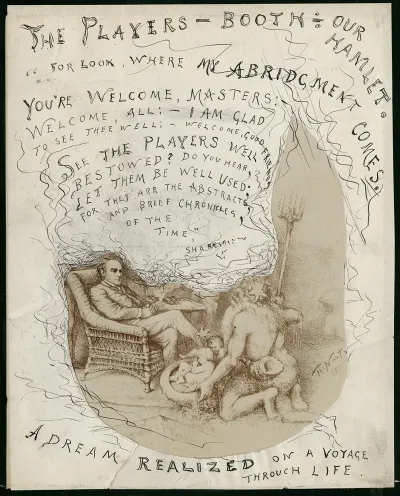 THE PLAYERS – BOOTH ÷ OUR HAMLET.
"FOR LOOK, WHERE MY ABRIDGMENT COMES.
YOU'RE WELCOME, MASTERS:–
WELCOME, ALL:– I AM GLAD
TO SEE THEE WELL:– WELCOME, GOOD FRIENDS.
SEE THE PLAYERS WELL
BESTOWED? DO YOU HEAR,
LET THEM BE WELL USED:
FOR THEY ARE THE ABSTRACTS,
AND BRIEF CHRONICLES,
OF THE
TIME"
A DREAM REALIZED ON A VOYAGE
THROUGH LIFE.